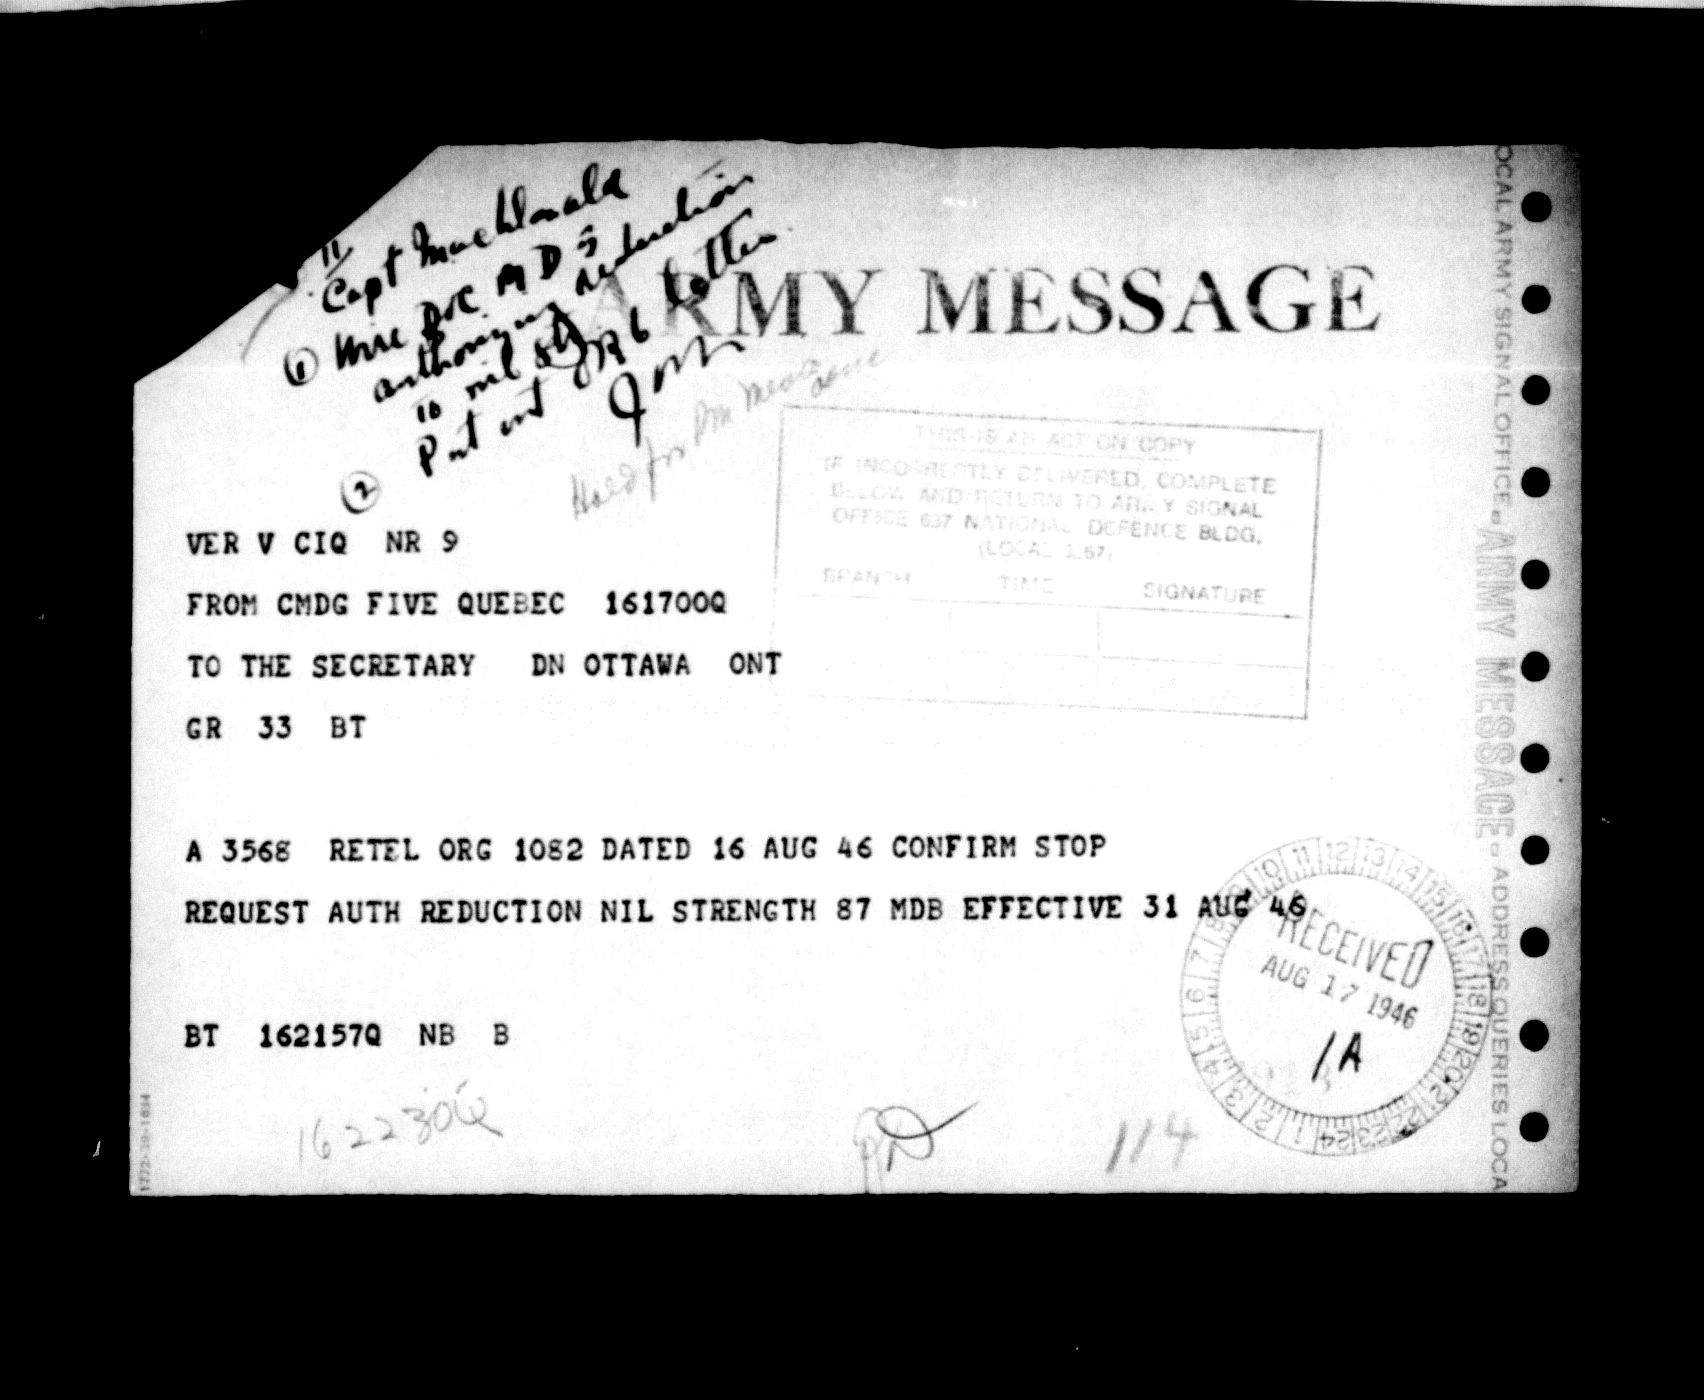 11
Capt MacDonald
① Wire DOC MD 5
authorizing reduction
to nil str
② Put out GR 6 letter
ARMY MESSAGE
Hold for
THIS IS AN ACTION COPY
IF INCORRECTLY DELIVERED, COMPLETE
BELOW AND RETURN TO ARMY SIGNAL
OFFICE 637 NATIONAL DEFENCE BLDG.
BRANCH TIME SIGNATURE
VER V CIQ NR 9
FROM CMDG FIVE QUEBEC 161700Q
TO THE SECRETARY DN OTTAWA ONT
GR 33 BT
A 3568 RETEL ORG 1082 DATED 16 AUG 46 CONFIRM STOP
REQUEST AUTH REDUCTION NIL STRENGTH 87 MDB EFFECTIVE 31 AUG 46
BT 162157Q NB B
162230Q
114
RECEIVED
AUG 17 1946
1A
1 2 3 4 5 6 7 8 9 10 11 12 13 14 15 16 17 18 19 20 21 22 23 24
OCAL ARMY SIGNAL OFFICE - ARMY MESSAGE - ADDRESS QUERIES LOCA
1772-39-1634